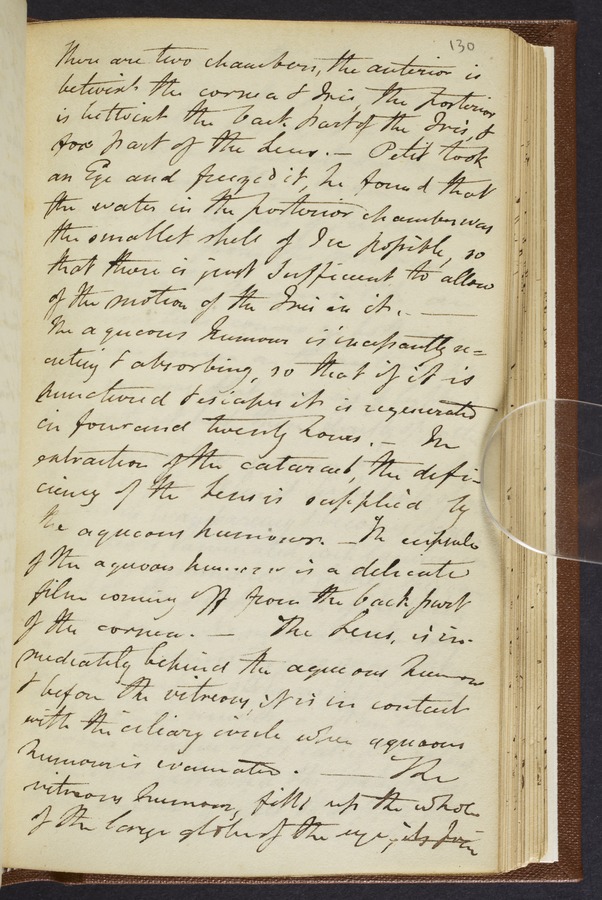 130
There are two chambers, the anterior is
betwixt the cornea & Iris, the posterior
is bettwixt the back part of the Iris, &
fore part of the Lens. — Petit took
an Eye and freezed it, he found that
the water in the posterior chamber was
the smallet shell of Ice possible, so
that there is just Sufficient to allow
of the motion of the Iris in it. —
The aqueous humour is incessantly se=
creting & absorbing, so that if it is
punctured & escapes it is regenerated
in four and twenty hours. — In
extraction of the cataract, the defi-
ciency of the Lens is supplied by
the aqueous humour. — The capsule
of the aqueous humour is a delicate
film coming off from the back part
of the cornea. — The Lens, is im-
mediately behind the aqueous humour
& before the vitreous, it is in contact
with the ciliary circle when aqueous
humour is evacuated. — The
vitreous humour, fills up the whole
of the large globe of the eye, its